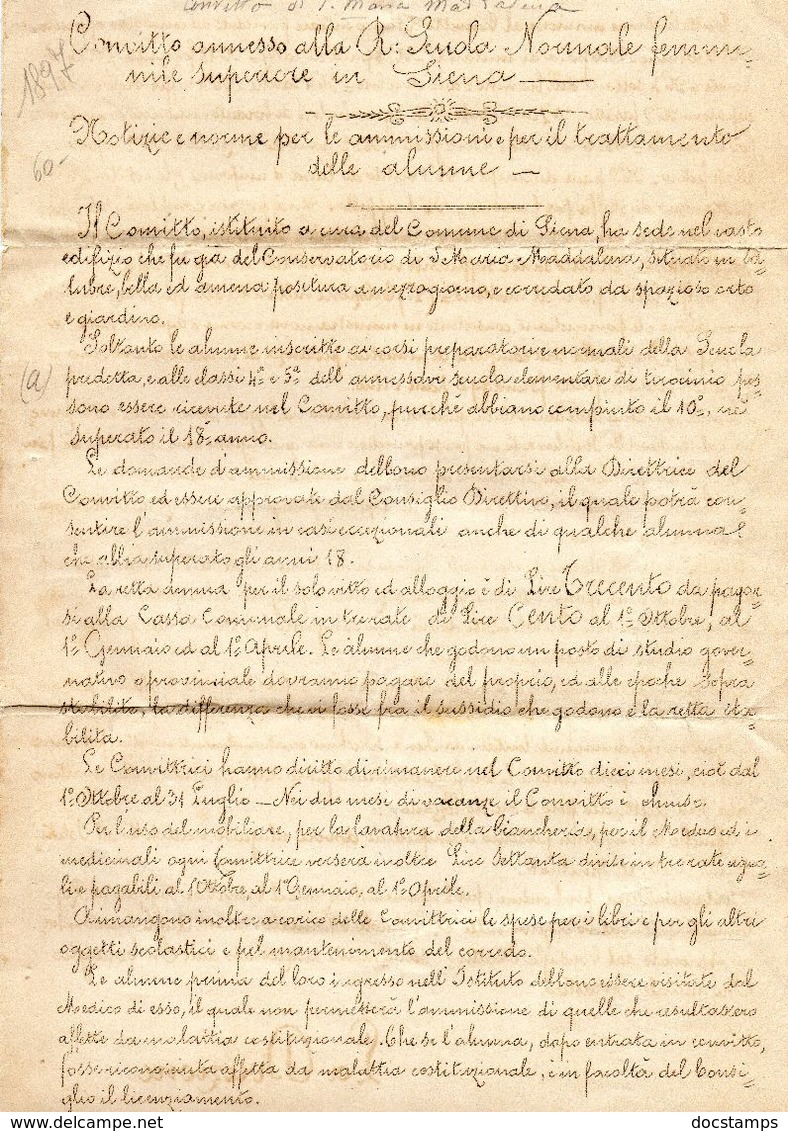 Convitto di S. Maria Maddalena
Convitto annesso alla R: Scuola Normale femmi-
nile superiore in Siena —
1897
Notizie e norme per le ammissioni e per il trattamento
delle alunne —
60-
Il Convitto, istituito a cura del Comune di Siena, ha sede nel vasto
edifizio che fu già del Conservatorio di S Maria Maddalena, situato in sa-
lubre, bella ed amena positura a mezzogiorno, e corredato da spazioso orto
e giardino.
Soltanto le alunne inscritte ai corsi preparatori e normali della Scuola
(a)
predetta, e alle classi 4ª e 5ª dell'annessavi scuola elementare di tirocinio pos-
sono essere ricevute nel Convitto, purchè abbiano compiuto il 10º, nè
superato il 18º anno.
Le domande d'ammissione debbono presentarsi alla Direttrice del
Convitto ed essere approvate dal Consiglio Direttivo, il quale potrà con-
sentire l'ammissione in casi eccezionali anche di qualche alunna
che abbia superato gli anni 18.
La retta annua per il solo vitto ed alloggio è di Lire Trecento da pagar-
si alla Cassa Comunale in tre rate di Lire Cento al 1º Ottobre, al
1º Gennaio ed al 1º Aprile. Le alunne che godono un posto di studio gover-
nativo o provinciale dovranno pagare del proprio, ed alle epoche sopra
stabilite, la differenza che vi fosse fra il sussidio che godono e la retta sta-
bilita.
Le Convittrici hanno diritto di rimanere nel Convitto dieci mesi, cioè dal
1º Ottobre al 31 Luglio — Nei due mesi di vacanze il Convitto è chiuso.
Per l'uso del mobiliare, per la lavatura della biancheria, per il Medico ed i
medicinali ogni Convittrice verserà inoltre Lire Settanta divise in tre rate egua-
li e pagabili al 1 Ottobre, al 1º Gennaio, al 1º Aprile.
Rimangono inoltre a carico delle Convittrici le spese per i libri e per gli altri
oggetti scolastici e pel mantenimento del corredo.
Le alunne prima del loro ingresso nell'Istituto debbono essere visitate dal
Medico di esso, il quale non permetterà l'ammissione di quelle che resultassero
affette da malattia costituzionale. Che se l'alunna, dopo entrata in convitto,
fosse riconosciuta affetta da malattia costituzionale, è in facoltà del Consi-
glio il licenziamento.
docstamps